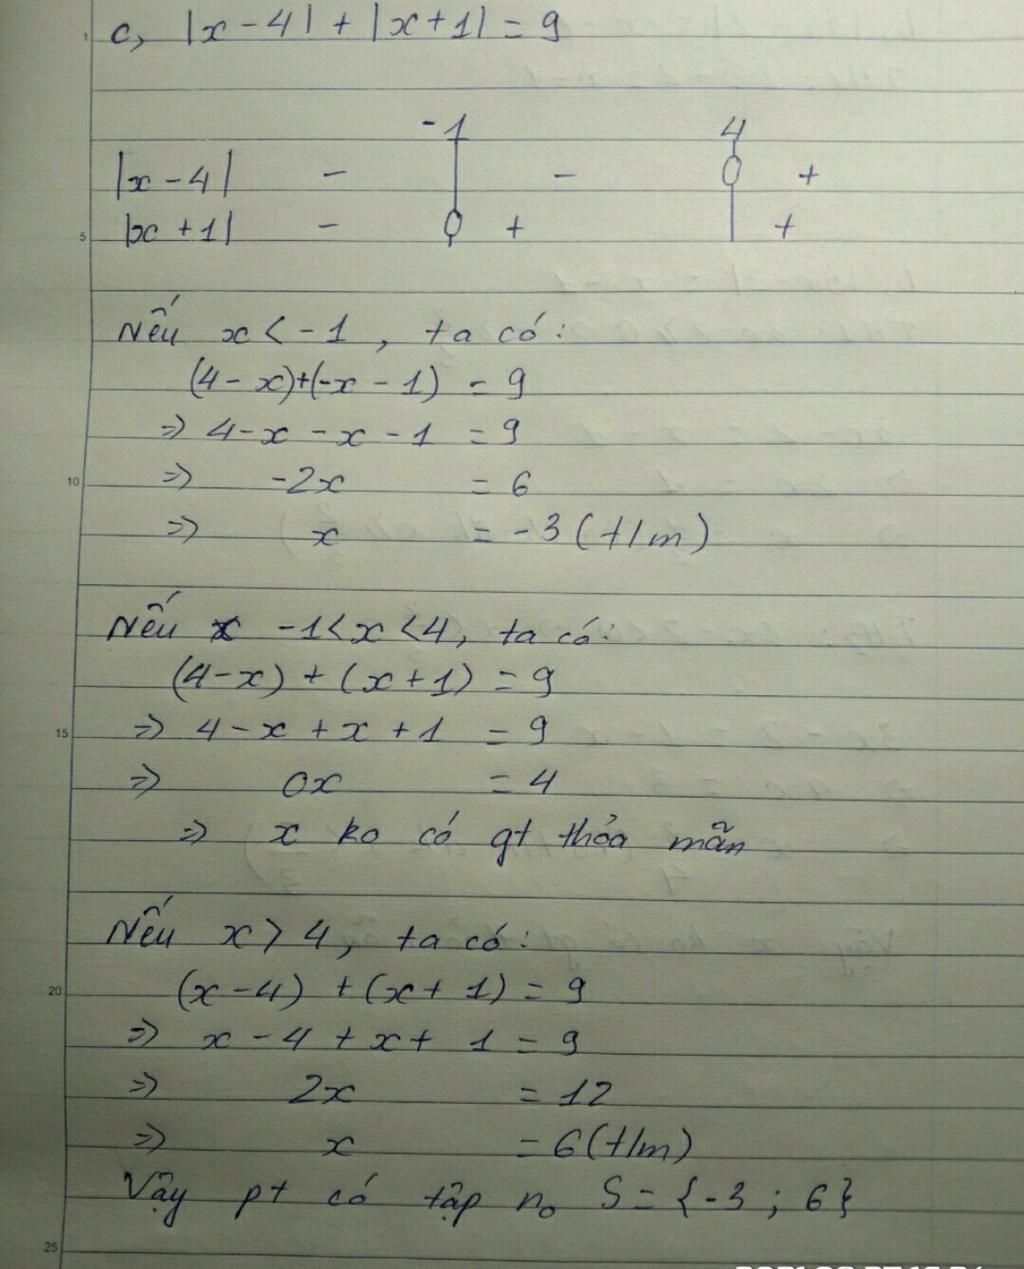 c, |x-4| + |x+1| = 9
-1 4
|x-4| - - 0 +
|x+1| - 0 + +
Nếu x < -1, ta có:
(4-x)+(-x-1) = 9
=> 4-x-x-1 = 9
=> -2x = 6
=> x = -3 (t/m)
Nếu -1<x<4, ta có:
(4-x) + (x+1) = 9
=> 4-x+x+1 = 9
=> 0x = 4
=> x ko có gt thỏa mãn
Nếu x > 4, ta có:
(x-4) + (x+1) = 9
=> x-4+x+1 = 9
=> 2x = 12
=> x = 6 (t/m)
Vậy pt có tập no S = {-3; 6}
1
5
10
15
20
25